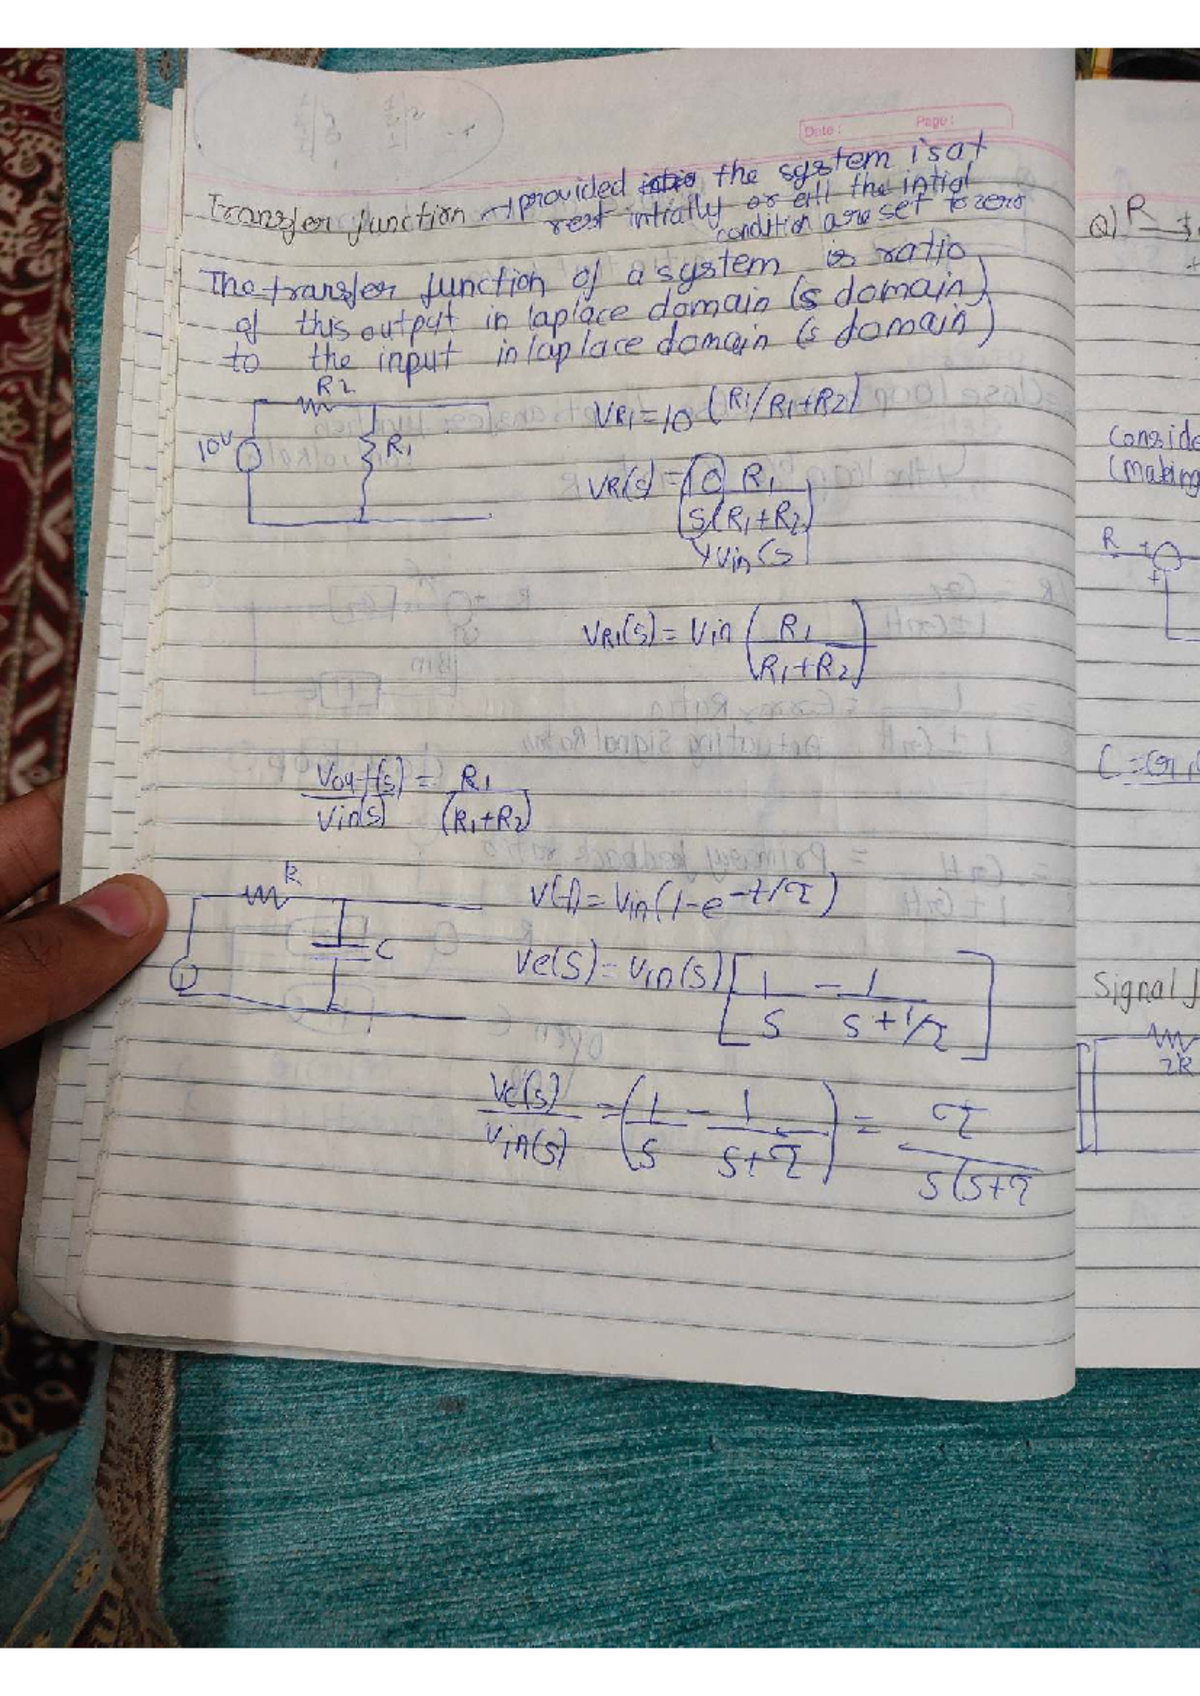 Date :
Page :
Transfer function → provided the system is at
rest intially or all the intial
condition are set to zero
The transfer function of a system is ratio
of this output in laplace domain (s domain)
to the input in laplace domain (s domain)
R2
10V
R1
VR1 = 10 (R1/R1+R2)
VR(s) = 10 R1
S(R1+R2)
Vin(s
VR1(s) = Vin ( R1
R1+R2 )
Vout(s) = R1
Vin(s) (R1+R2)
R
C
V(t) = Vin(1-e-t/τ)
Vc(s) = Vin(s) [ 1 - 1
S S+1/τ ]
Vc(s) = ( 1 - 1 ) = τ
Vin(s) S S+τ S(S+τ
Q) R
Conside
(making
R +
+
C = G1
Signal f
2R